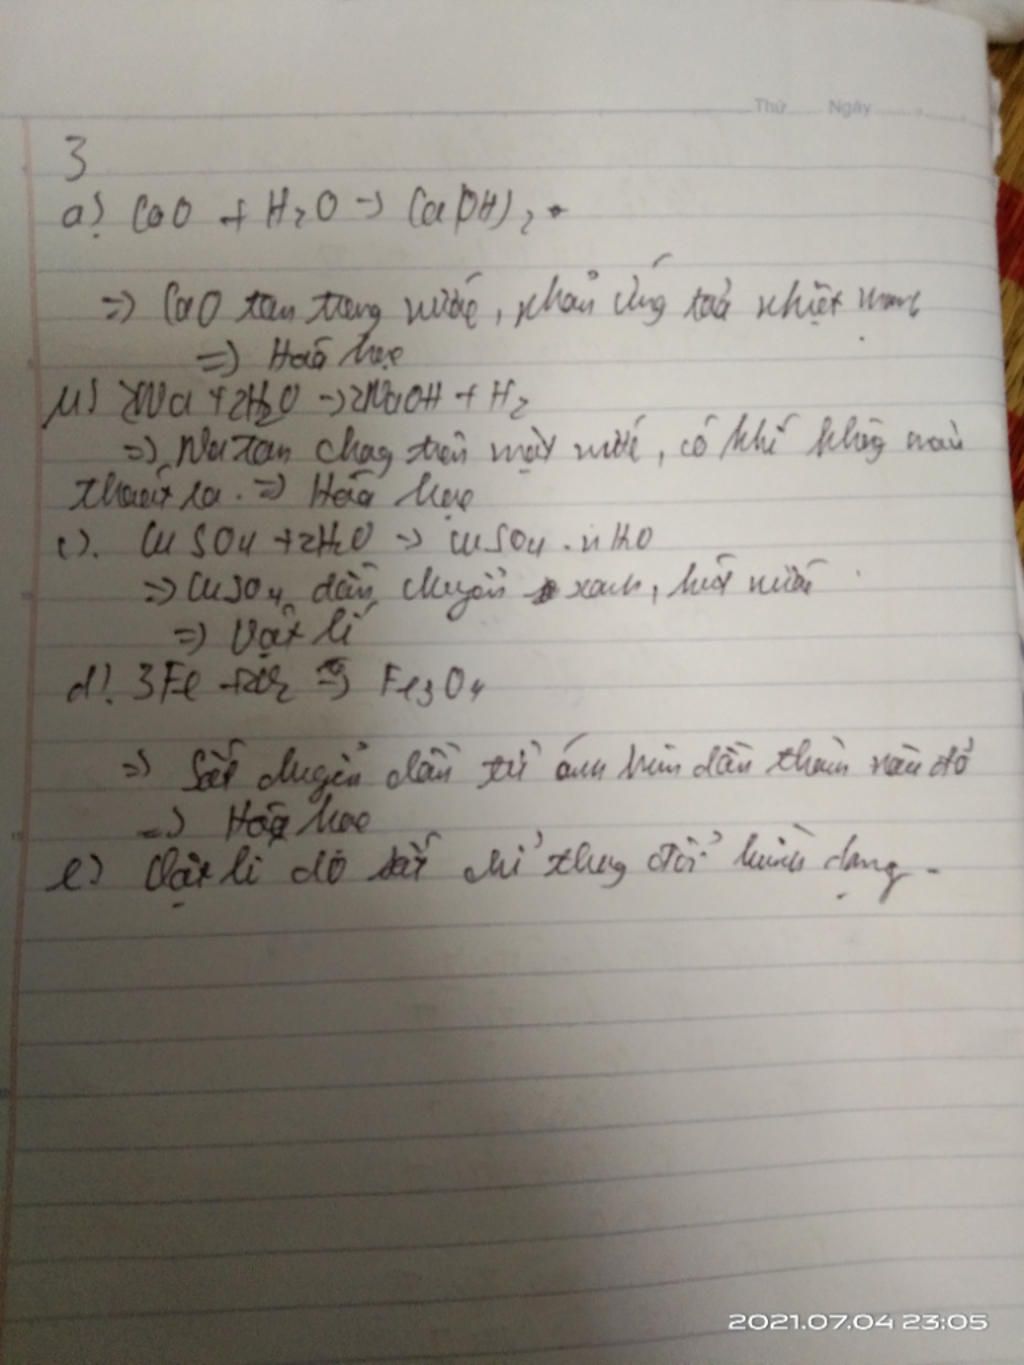 Thứ Ngày
3
a) CaO + H2O -> Ca(OH)2.
=> CaO tan trong nước, phản ứng toả nhiệt mạnh
=> Hoá học
2Na + 2H2O -> 2NaOH + H2
=> Na tan chạy trên mặt nước, có khí không màu
thoát ra. => Hoá học
c). CuSO4 + 2H2O -> CuSO4.nH2O
=> CuSO4 dần chuyển xanh, hút nước
=> Vật lí
d) 3Fe + => Fe3O4
=> Sắt chuyển dần từ ánh kim dần thành nâu đỏ
=> Hoá học
e) Vật lí do sắt chỉ thay đổi hình dạng.
2021.07.04 23:05